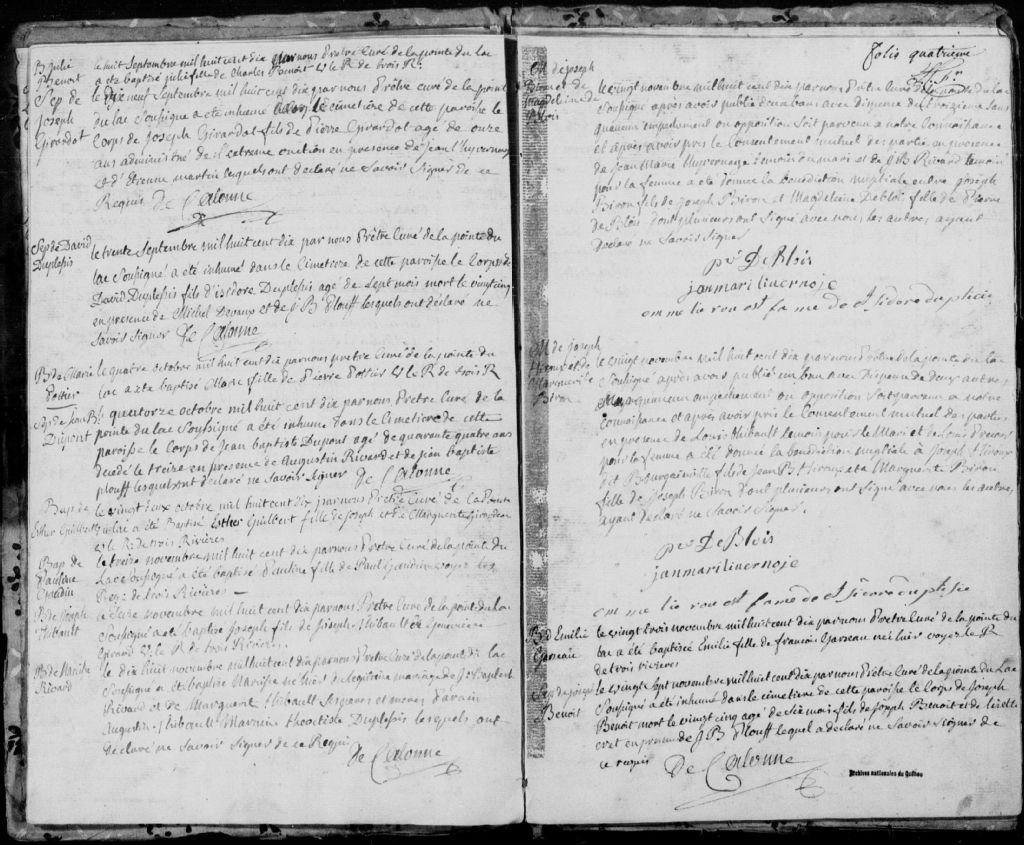 B Julie
Benoit
le huit Septembre mil huit cent dix par nous Prêtre Curé de la pointe du Lac
a ete baptisé julie fille de Charles Benoit V. le R de trois R.
Sep de
Joseph
Girardot
le dix neuf Septembre mil huit cent dix par nous Prêtre curé de la pointe
du lac Sousigné a ete inhumé dans le cimetiere de cette paroisse le
Corps de Joseph Girardot fils de Pierre Girardot agé de onze
ans administré de l'extreme onction en presence de Jean
et d'Etienne martin lesquels ont declaré ne Savoir Signer de ce
Requis De Calonne
Sep de David
Duplesis
le trente Septembre mil huit cent dix par nous Prêtre Curé de la pointe du
lac Sousigné a eté inhumé dans le Cimetiere de cette paroisse le Corps de
David Duplesis fils d'isidore Duplesis agé de Sept mois mort le vingt cinq
en presence de Michel Devaux et de J B Plouff lesquels ont déclaré ne
Savoir Signer De Calonne
B de Marie
Pottier
le quatre octobre mil huit cent dix par nous pretre Curé de la pointe du
lac a ete baptisé Marie fille de Pierre Pottier V. le R de trois R
Sep. de Jean Bt.
Dupont
quatorze octobre mil huit cent dix par nous Prêtre Curé de la
pointe du lac Sousigné a eté inhumé dans le Cimetiere de cette
paroisse le Corps de Jean baptiste Dupont agé de quarante quatre ans
decedé le treize en presence de Augustin Ricard et de jean baptiste
plouff lesquels ont declaré ne Savoir Signer De Calonne
Bap. de
Esther Guilbert
le vingt deux octobre mil huit cent dix par nous Pretre Curé de la Pointe
du lac a été Baptisé Esther Guilbert fille de Joseph et de Marguerite
V. le R. de trois Rivières
Bap de
Pauline
Gaudin
le treize novembre mil huit cent dix par nous Prêtre Curé de la pointe du
Lac Sousigné a été baptisé Pauline fille de Paul Gaudin voyez les
Reg. de trois Rivières
B de Joseph
Thibault
le novembre mil huit cent dix par nous Prêtre Curé de la pointe du lac
Sousigné a été baptisé Joseph fils de Joseph Thibault et Genevieve
V. le R de trois Rivieres.
B de
Ricard
le dix huit novembre mil huit cent dix par nous Pretre Curé de la pointe du lac
Sousigné a été baptisé né hier de legitime mariage de
Ricard et de Marguerit Thibault Ses peres et meres Parain
Augustin Thibault Maraine theoctiste Duplesis lesquels ont
déclaré ne Savoir Signer de ce Requis
De Calonne
Folio quatrieme
M de joseph
Biron et de
Magdeleine De
Blois
le vingt novembre mil huit cent dix par nous Prêtre Curé de la pointe du Lac
Sousigné après avoir publié deux bans avec dispense du troizieme Sans
qu'aucun empechement ou opposition Soit parvenu a notre Connaissance
et après avoir pris le Consentement mutuel des parties en presence
de Jean Marie temoin du mari et de J B Ricard temoin
pour la femme a été donné la benediction nuptiale entre joseph
Biron fils de joseph Biron et Magdeleine Deblois fille de Pierre
de Blois dont plusieurs ont Signé avec nous les autres ayant
declaré ne Savoir Signer
per De Blois
janmari livernoje
emmelie ron est fame de isidore duplecie
M de Joseph
et de
Marguerite
Biron
le vingt novembre mil huit cent dix par nous Prêtre de la pointe du lac
Sousigné après avoir publié un ban avec Dispense de deux autres
qu'aucun empechement ou opposition Soit parvenu a notre
connaissance et après avoir pris le Consentement mutuel des parties
en presence de Louis thibault temoin pour le Mari et de Louis
pour la femme a été donné la benediction nuptiale à Joseph
dit Bourgainville fils de jean B et a Marguerite Biron
fille de Joseph Biron dont plusieurs ont Signé avec nous les autres
ayant declaré ne Savoir Signer.
per De Blois
janmari livernoje
emmelie ron est fame de isidore duplesie
B. d'Emilie
Garceau
le vingt trois novembre mil huit cent dix par nous Prêtre Curé de la pointe du
lac a été baptisée Emilie fille de francois Garceau née hier voyez le R
de trois rivieres
Sep de joseph
Benoit
le vingt sept novembre mil huit cent dix par nous Prêtre Curé de la pointe du Lac
Sousigné a été inhumé dans le cimetiere de cette paroisse le Corps de Joseph
Benoit mort le vingt cinq agé de Six mois fils de joseph Benoit et de
en presence de J B Plouff lequel a declaré ne Savoir Signer de
ce requis De Calonne
Archives nationales du Québec